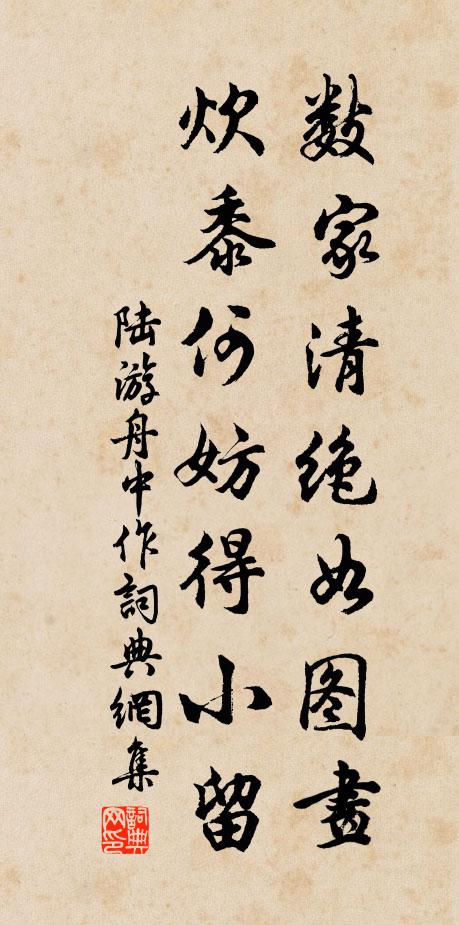 数家清绝如图畫
炊黍何妨得小留
陆游舟中作詞典網集
詞典
网印